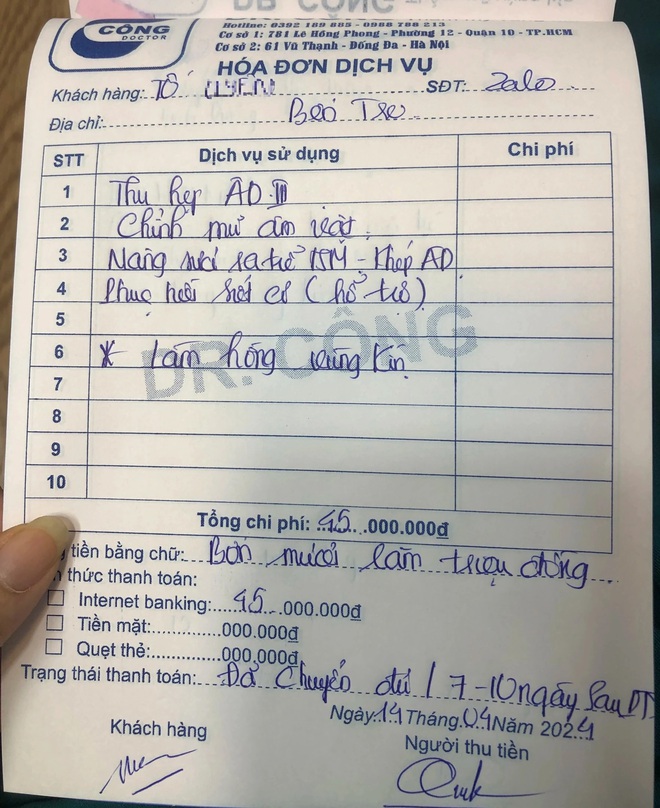 DR CÔNG
CÔNG
DOCTOR
Hotline: 0392 189 885 - 0988 788 213
Cơ sở 1: 781 Lê Hồng Phong - Phường 12 - Quận 10 - TP.HCM
Cơ sở 2: 61 Vũ Thạnh - Đống Đa - Hà Nội
HÓA ĐƠN DỊCH VỤ
Khách hàng: TỐ UYÊN SĐT: Zalo
Địa chỉ: Bến Tre
STT Dịch vụ sử dụng Chi phí
1 Thu hẹp ÂĐ III
2 Chỉnh mũ âm vật
3 Nâng cơ sa trễ TSM - Khép ÂĐ
4 Phục hồi sót cơ (hỗ trợ)
5
6 * Làm hồng vùng kín
DR. CÔNG
7
8
9
10
Tổng chi phí: 45.000.000đ
tiền bằng chữ: Bốn mươi lăm triệu đồng
thức thanh toán:
Internet banking: 45.000.000đ
Tiền mặt: .000.000đ
Quẹt thẻ: 000.000đ
Trạng thái thanh toán: Đã chuyển đủ / 7-10 ngày sau ĐT
Ngày 14 Tháng 04 Năm 2024
Khách hàng Người thu tiền